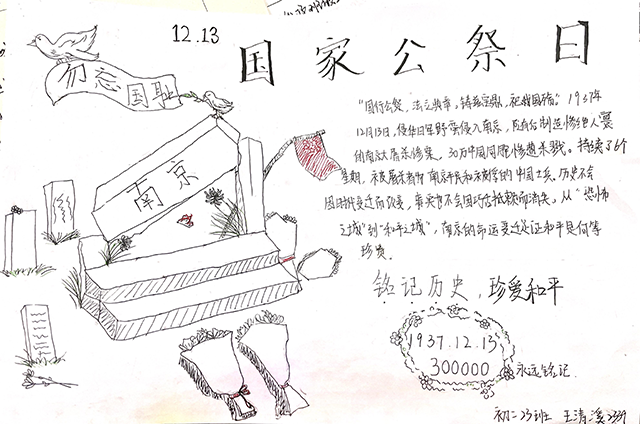 12.13
国家公祭日
勿忘国耻
南京
"国行公祭，法立典章，铸兹宝鼎，祀我国殇。"1937年
12月13日，侵华日军野蛮侵入南京，制造惨绝人寰
的南京大屠杀惨案，30万中国同胞惨遭杀戮。持续了6个
星期，被屠杀者有南京平民和的中国士兵。历史不会
因时代变迁而改变，事实也不会因巧舌抵赖而消失，从"恐怖
之城"到"和平之城"，南京的命运变迁足证和平是何等
珍贵。
铭记历史，珍爱和平
1937.12.13
300000
永远铭记
初二23班 王清溪